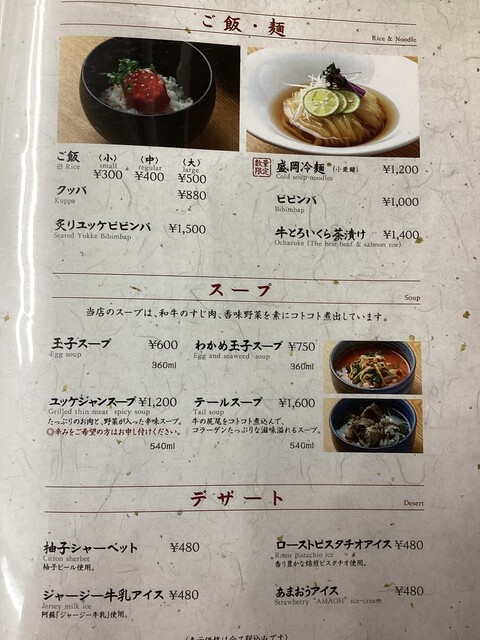 ご飯・麺
Rice & Noodle
ご飯 (小) (中) (大)
白 Rice small regular large
¥300 ¥400 ¥500
クッパ ¥880
Kuppa
炙りユッケビビンバ ¥1,500
Seared Yukke Bibimbap
数量限定 盛岡冷麺 (小麦麺) ¥1,200
Cold soup noodles
ビビンバ ¥1,000
Bibimbap
牛とろいくら茶漬け ¥1,400
Ochazuke (The best beef & salmon roe)
スープ
Soup
当店のスープは、和牛のすじ肉、香味野菜を素にコトコト煮出しています。
玉子スープ ¥600
Egg soup
360ml
わかめ玉子スープ ¥750
Egg and seaweed soup
360ml
ユッケジャンスープ ¥1,200
Grilled thin meat spicy soup
たっぷりのお肉と、野菜が入った辛味スープ。
◎辛みをご希望の方はお申し付けください。
540ml
テールスープ ¥1,600
Tail soup
牛の尻尾をコトコト煮込んで、
コラーゲンたっぷりな滋味溢れるスープ。
540ml
デザート
Desert
柚子シャーベット ¥480
Citron sherbet
柚子ピール使用。
ジャージー牛乳アイス ¥480
Jersey milk ice
阿蘇「ジャージー牛乳」使用。
ローストピスタチオアイス ¥480
Roast pistachio ice
香り豊かな焙煎ピスタチオ使用。
あまおうアイス ¥480
Strawberry "AMAOH" ice-cream
(表示価格は全て税込みです)